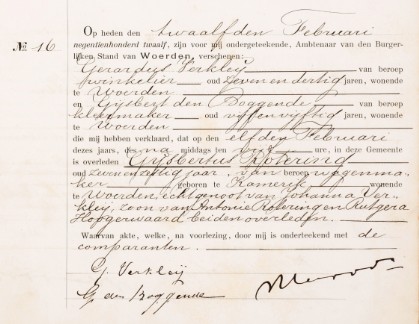 Op heden den twaalfden Februari
№ 16
negentienhonderd twaalf, zijn voor mij ondergeteekende, Ambtenaar van den Burger-
lijken Stand van Woerden, verschenen:
Gerardus Verkleij van beroep
winkelier oud zeven en dertig jaren, wonende
te Woerden en
Gijsbert den Boggende van beroep
kleermaker oud vijfenvijftig jaren, wonende
te Woerden
die mij hebben verklaard, dat op den elfden Februari
dezes jaars, des na middags ten ure, in deze Gemeente
is overleden Gijsbertus Kotering
oud zevenenzestig jaar, van beroep
ker geboren te Kamerik wonende
te Woerden, echtgenoot van Johanna Ver-
kley, zoon van Antonie Kotering en Rutgera
Hoogerwaard beiden overleden.
Waarvan akte, welke, na voorlezing, door mij is onderteekend met de
comparanten.
G. Verkleij
G. den Boggende